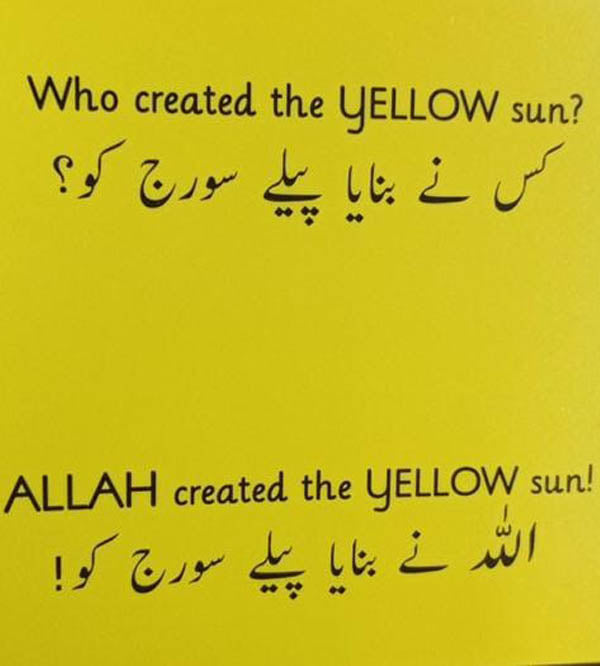 Who created the YELLOW sun?
کس نے بنایا پیلے سورج کو؟
ALLAH created the YELLOW sun!
اللہ نے بنایا پیلے سورج کو!